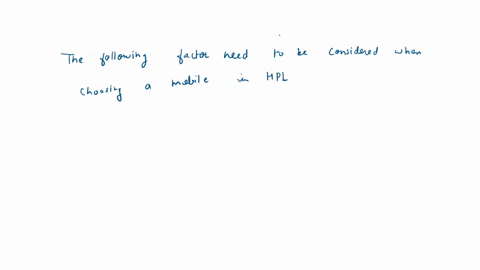 The following factor need to be considered when
choosing a mobile in HPL